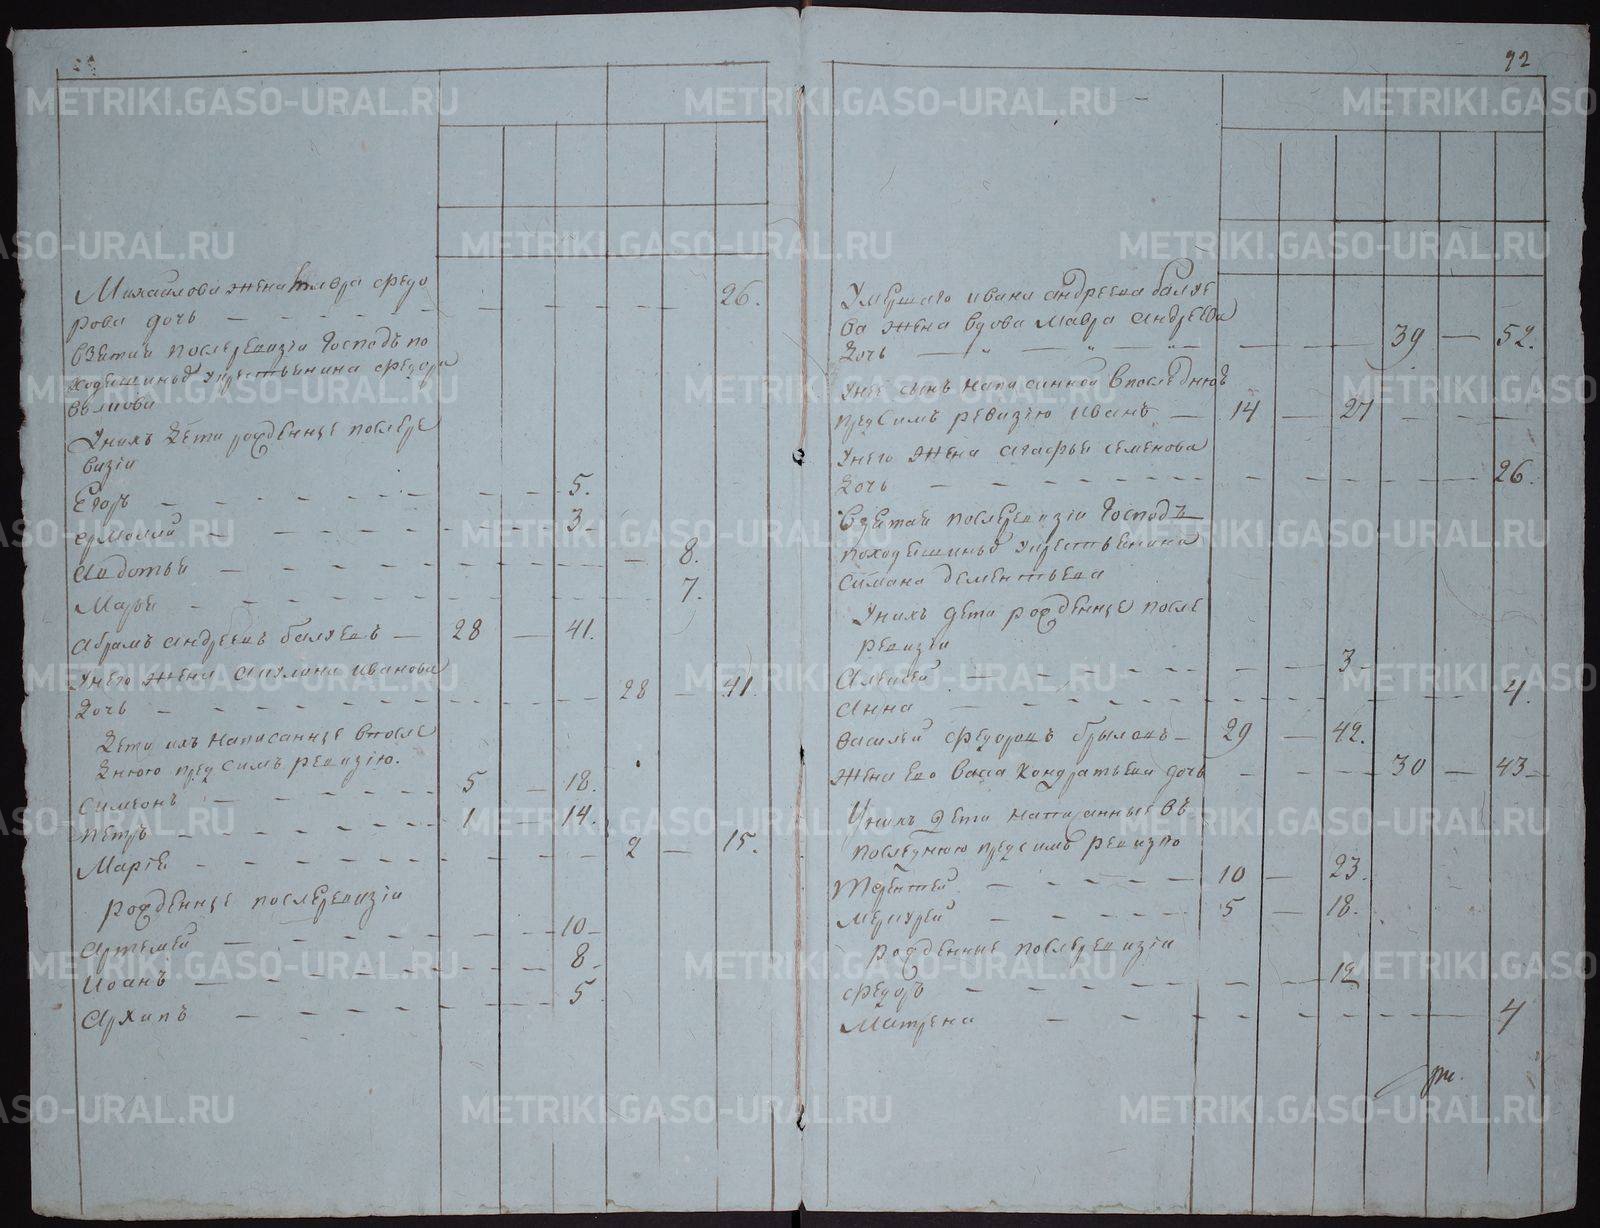 Михайлова жена Мавра Федо 26.
рова дочь
взятая после ревизiи Господъ по
ходяшиныхъ у крестьянина Федора
Волкова
У нихъ дети рожденные после ре
визiи
Егоръ 5.
Ермолай 3
Авдотья 8.
Марья 7.
Абрамъ Андреевъ Балуевъ 28 41.
У него жена Акулина Иванова
дочь 28 41.
Дети ихъ написанные в после
днюю пред симъ ревизiю.
Симеонъ 5 18.
Петръ 1 14.
Марья 2 15.
Рожденные после ревизiи
Артемей 10
Иванъ 8
Архипъ 5
92
Умершаго Ивана Андреева Балуе
ва жена вдова Мавра Андреева
дочь 39 52.
У нее сынъ написанной в последнюю
пред симъ ревизiю Иванъ 14 27
У него жена Агафья Семенова
дочь 26.
взятая после ревизiи Господъ
Походяшиныхъ у крестьянина
Симана Дементьева
У нихъ дети рожденные после
ревизiи
Алексей 3
Анна 4.
Василей Федоровъ Брылевъ 29 42.
Жена ево Васса Кондратьева дочь 30 43
У нихъ дети написанные въ
последнюю пред симъ ревизiю
Терентей 10 23.
Меркурей 5 18.
Рожденные после ревизiи
Федоръ 12
Матрена 4
METRIKI.GASO-URAL.RU